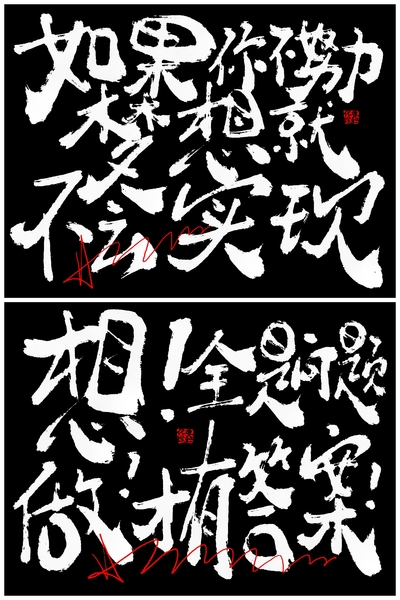 如果你不努力
梦想就
不会实现
想！全是问题
做！才有答案！